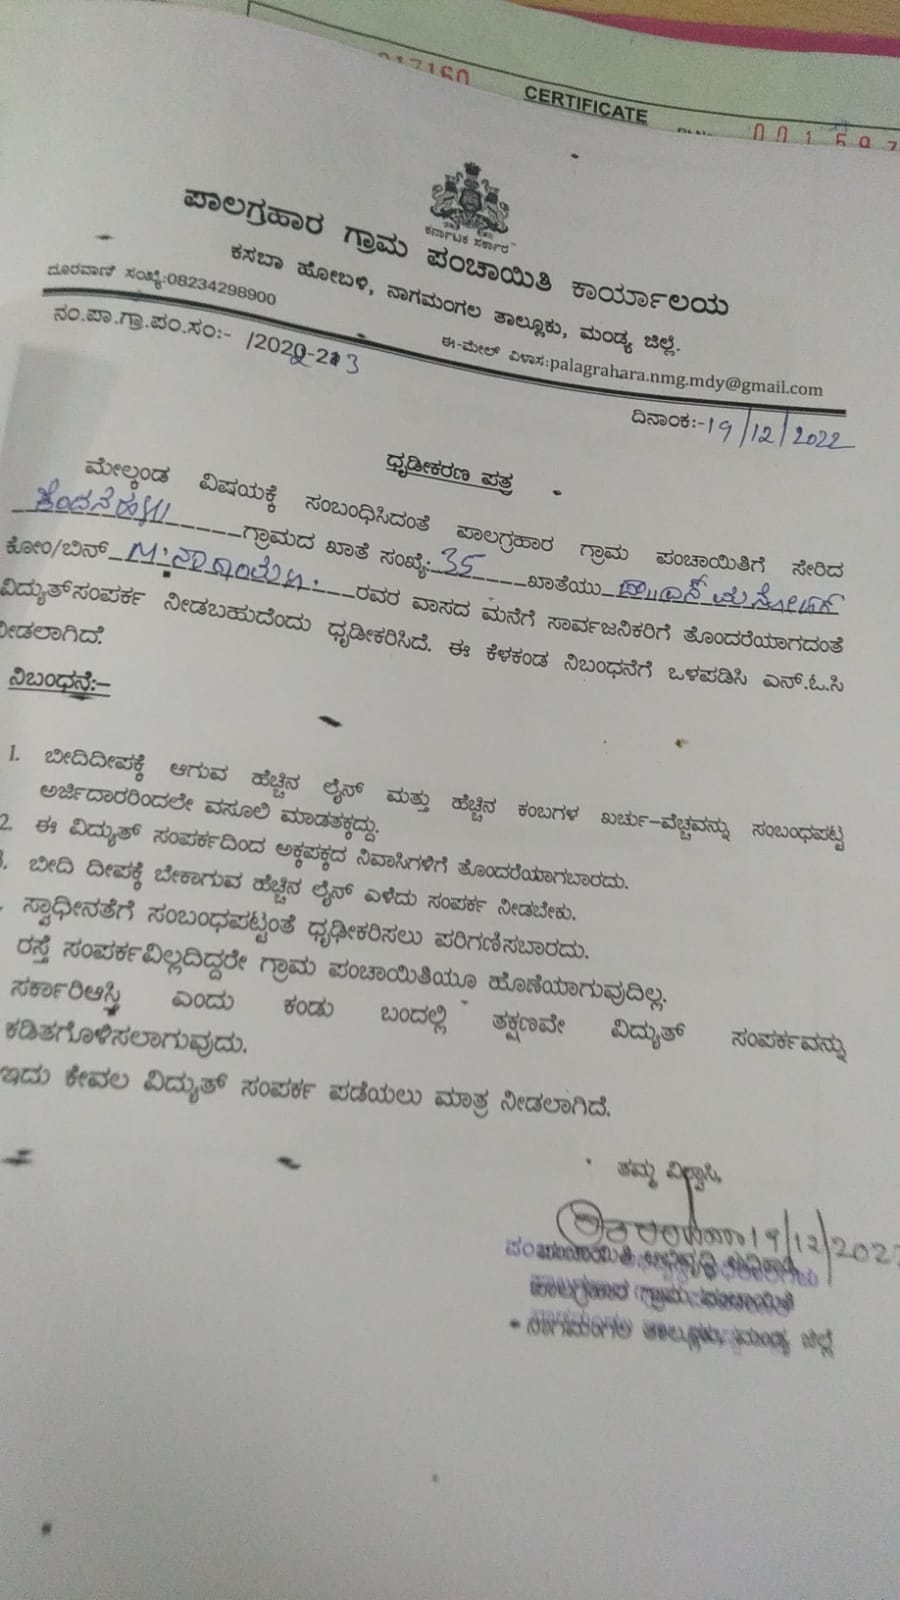 217160
CERTIFICATE
ಕರ್ನಾಟಕ ಸರ್ಕಾರ
ಪಾಲಗ್ರಹಾರ ಗ್ರಾಮ ಪಂಚಾಯಿತಿ ಕಾರ್ಯಾಲಯ
ಕಸಬಾ ಹೋಬಳಿ, ನಾಗಮಂಗಲ ತಾಲ್ಲೂಕು, ಮಂಡ್ಯ ಜಿಲ್ಲೆ.
ದೂರವಾಣಿ ಸಂಖ್ಯೆ:08234298900
ಈ-ಮೇಲ್ ವಿಳಾಸ:palagrahara.nmg.mdy@gmail.com
ನಂ.ಪಾ.ಗ್ರಾ.ಪಂ.ಸಂ:- /2022-23
ದಿನಾಂಕ:-19/12/2022
ಧೃಡೀಕರಣ ಪತ್ರ
ಮೇಲ್ಕಂಡ ವಿಷಯಕ್ಕೆ ಸಂಬಂಧಿಸಿದಂತೆ ಪಾಲಗ್ರಹಾರ ಗ್ರಾಮ ಪಂಚಾಯಿತಿಗೆ ಸೇರಿದ
ಗ್ರಾಮದ ಖಾತೆ ಸಂಖ್ಯೆ: 35 ಖಾತೆಯು
ಕೋಂ/ಬಿನ್ M. ರವರ ವಾಸದ ಮನೆಗೆ ಸಾರ್ವಜನಿಕರಿಗೆ ತೊಂದರೆಯಾಗದಂತೆ
ವಿದ್ಯುತ್‌ಸಂಪರ್ಕ ನೀಡಬಹುದೆಂದು ಧೃಡೀಕರಿಸಿದೆ. ಈ ಕೆಳಕಂಡ ನಿಬಂಧನೆಗೆ ಒಳಪಡಿಸಿ ಎನ್.ಓ.ಸಿ
ನೀಡಲಾಗಿದೆ.
ನಿಬಂಧನೆ:-
1. ಬೀದಿದೀಪಕ್ಕೆ ಆಗುವ ಹೆಚ್ಚಿನ ಲೈನ್ ಮತ್ತು ಹೆಚ್ಚಿನ ಕಂಬಗಳ ಖರ್ಚು-ವೆಚ್ಚವನ್ನು ಸಂಬಂಧಪಟ್ಟ
ಅರ್ಜಿದಾರರಿಂದಲೇ ವಸೂಲಿ ಮಾಡತಕ್ಕದ್ದು.
2. ಈ ವಿದ್ಯುತ್ ಸಂಪರ್ಕದಿಂದ ಅಕ್ಕಪಕ್ಕದ ನಿವಾಸಿಗಳಿಗೆ ತೊಂದರೆಯಾಗಬಾರದು.
ಬೀದಿ ದೀಪಕ್ಕೆ ಬೇಕಾಗುವ ಹೆಚ್ಚಿನ ಲೈನ್ ಎಳೆದು ಸಂಪರ್ಕ ನೀಡಬೇಕು.
ಸ್ವಾಧೀನತೆಗೆ ಸಂಬಂಧಪಟ್ಟಂತೆ ಧೃಢೀಕರಿಸಲು ಪರಿಗಣಿಸಬಾರದು.
ರಸ್ತೆ ಸಂಪರ್ಕವಿಲ್ಲದಿದ್ದರೇ ಗ್ರಾಮ ಪಂಚಾಯಿತಿಯೂ ಹೊಣೆಯಾಗುವುದಿಲ್ಲ.
ಸರ್ಕಾರಿಆಸ್ತಿ ಎಂದು ಕಂಡು ಬಂದಲ್ಲಿ ತಕ್ಷಣವೇ ವಿದ್ಯುತ್ ಸಂಪರ್ಕವನ್ನು
ಕಡಿತಗೊಳಿಸಲಾಗುವುದು.
ಇದು ಕೇವಲ ವಿದ್ಯುತ್ ಸಂಪರ್ಕ ಪಡೆಯಲು ಮಾತ್ರ ನೀಡಲಾಗಿದೆ.
ತಮ್ಮ ವಿಶ್ವಾಸಿ,
19/12/2022
ಪಂಚಾಯಿತಿ ಅಭಿವೃದ್ಧಿ ಅಧಿಕಾರಿ
ಪಾಲಗ್ರಹಾರ ಗ್ರಾಮ ಪಂಚಾಯಿತಿ
ನಾಗಮಂಗಲ ತಾಲ್ಲೂಕು, ಮಂಡ್ಯ ಜಿಲ್ಲೆ